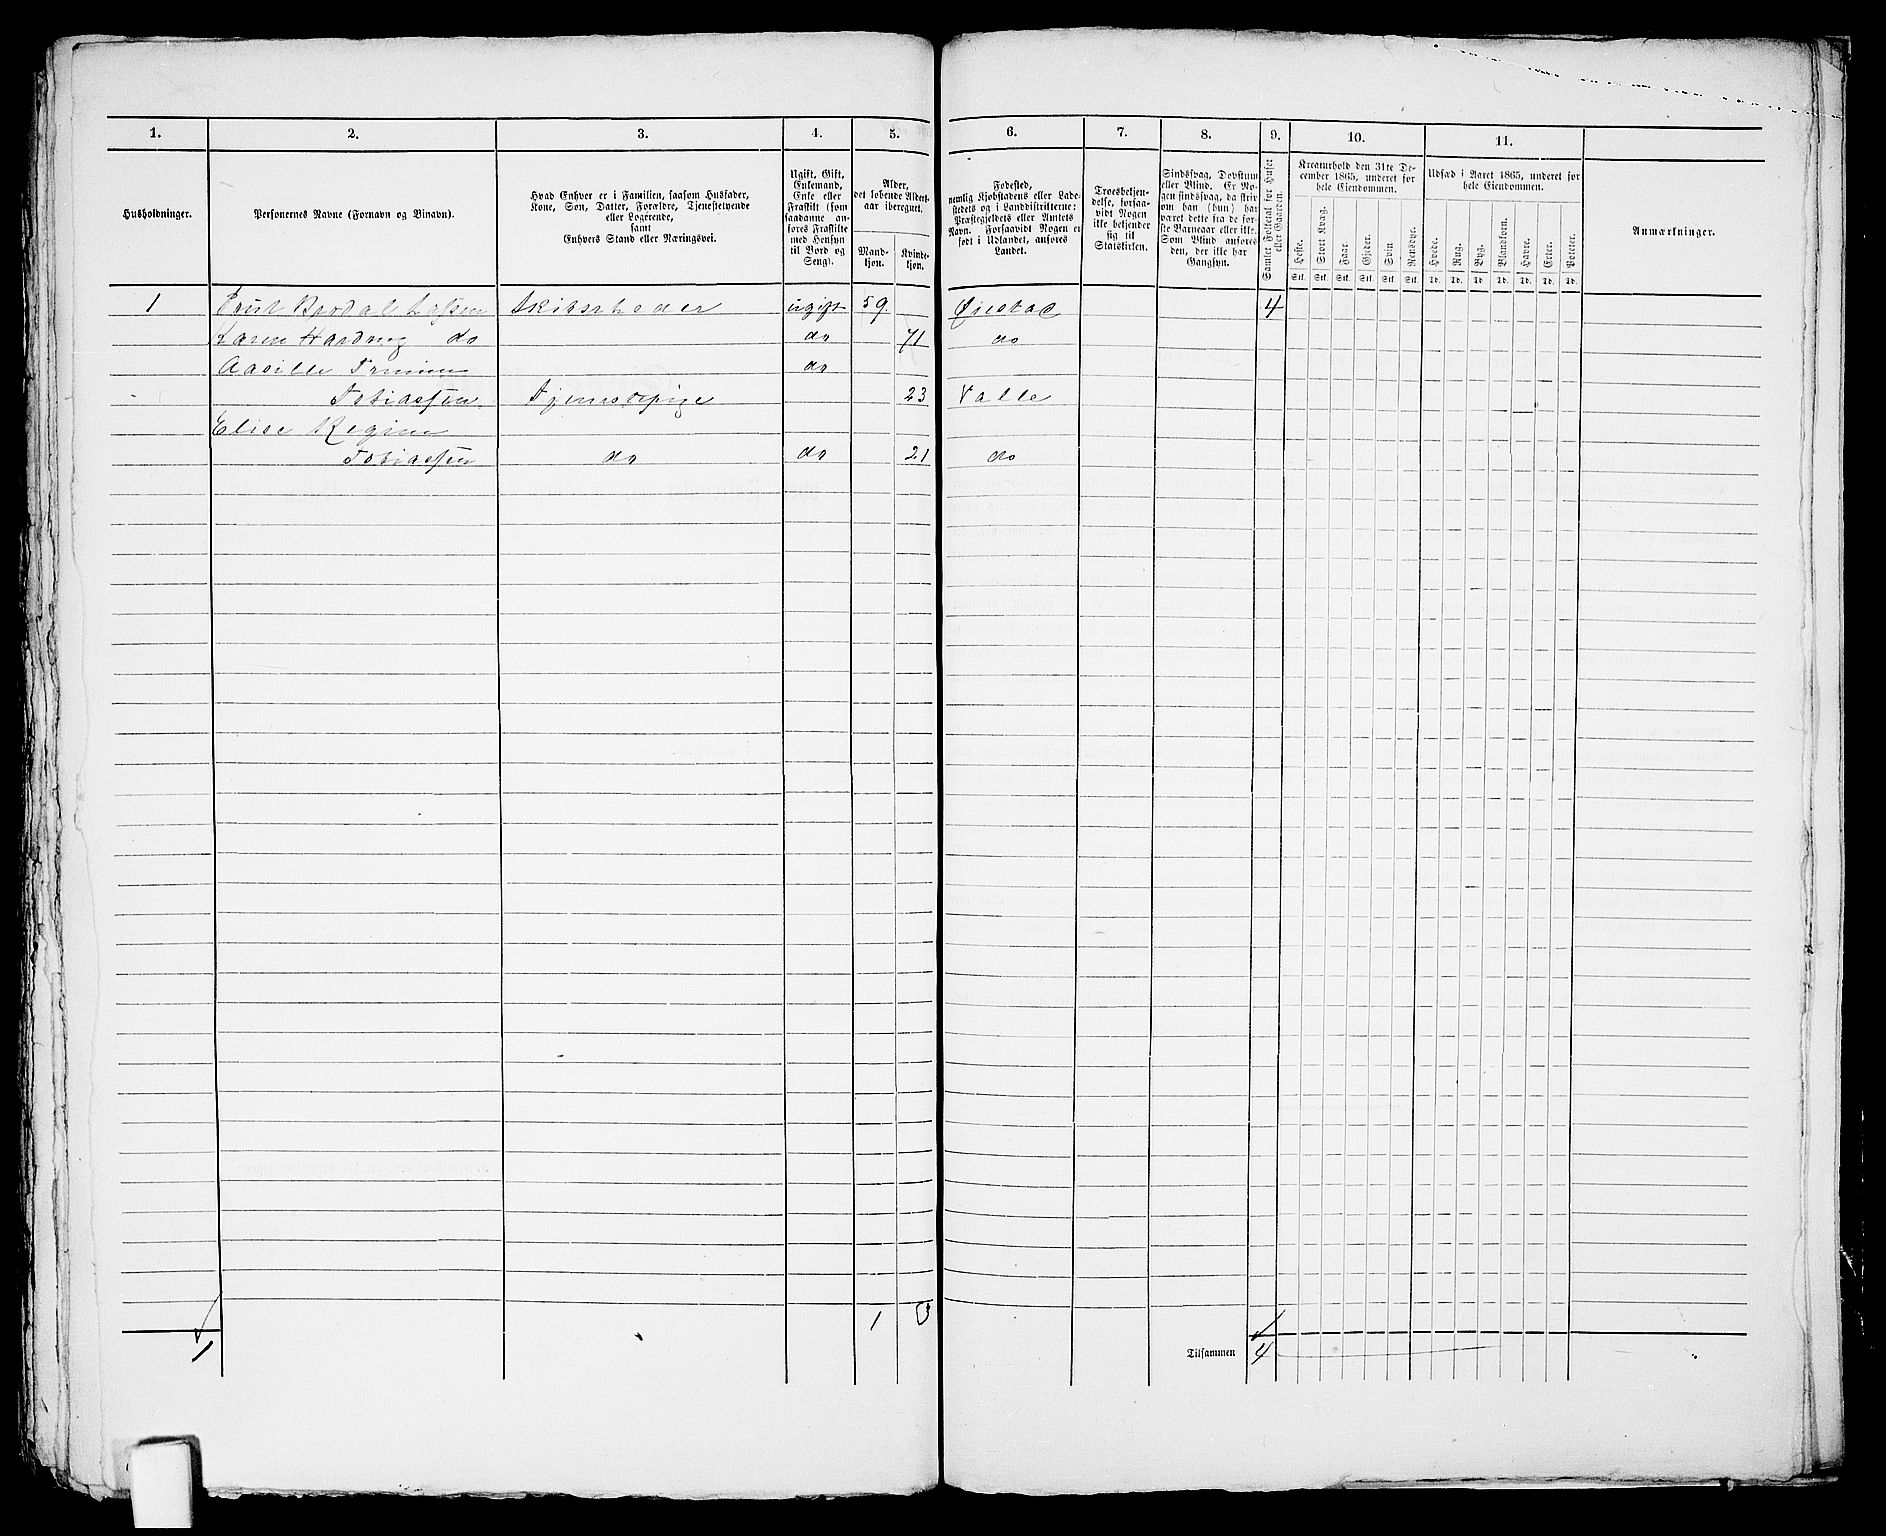 1. 2. 3. 4. 5. 6. 7. 8. 9. 10. 11.
Husholdninger.
Personernes Navne (Fornavn og Binavn).
Hvad Enhver er i Familien, saasom Husfader,
Kone, Søn, Datter, Forældre, Tjenestetyende
eller Logerende,
samt
Enhvers Stand eller Næringsvei.
Ugift, Gift,
Enkemand,
Enke eller
Fraskilt (som
saadanne an-
føres Fraskilte
med Hensyn
til Bord og
Seng).
Alder,
det løbende Alders-
aar iberegnet.
Mand-
kjøn.
Kvinde-
kjøn.
Fødested,
nemlig Kjøbstadens eller Lade-
stedets og i Landdistrikterne:
Præstegjeldets eller Amtets
Navn. Forsaavidt Nogen er
født i Udlandet, anføres
Landet.
Troesbekjen-
delse, forsaa-
vidt Nogen
ikke bekjender
sig til
Statskirken.
Sindssvag, Døvstum
eller Blind. Er No-
gen sindssvag, da skriv
om han (hun) har
været dette fra de før-
ste Barneaar eller ikke.
Som Blind anføres
den, der ikke har
Gangsyn.
Samlet Folketal for Huset
eller Gaarden.
Kreaturhold den 31te De-
cember 1865, underet for
hele Eiendommen.
Heste. Stort Kvæg. Faar. Gjeder. Svin Rensdyr.
Stk. Stk. Stk. Stk. Stk. Stk.
Udsæd i Aaret 1865, underet for
hele Eiendommen.
Hvede. Rug. Byg. Blandkorn. Havre. Erter. Poteter.
Td. Td. Td. Td. Td. Td. Td.
Anmærkninger.
1 Lassen Skibsrheder ugift 59. Øiestad 4
Karen do do 71 do
do
Tobiassen Tjenestepige 23 Valle
Elise Regine
Tobiassen do do 21 do
1 3
1 Tilsammen 4